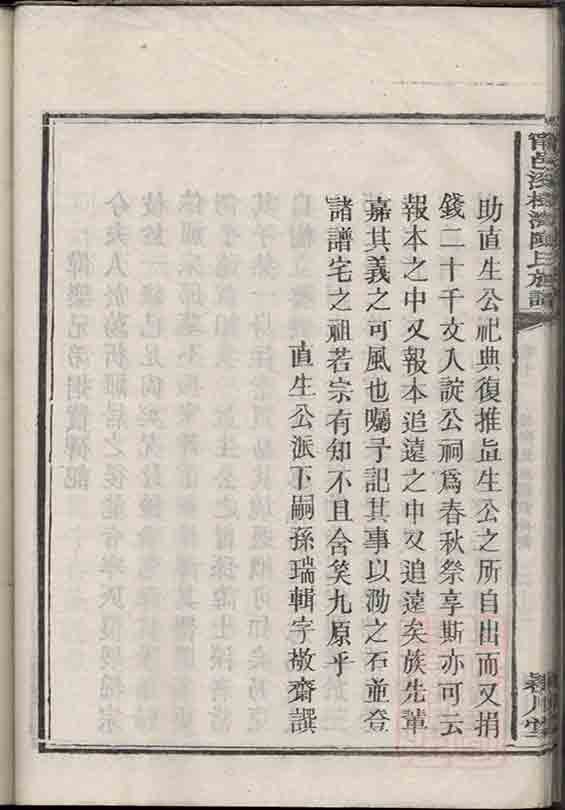 助直生公祀典復推直生公之所自出而又捐
錢二十千文入諚公祠爲春秋祭享斯亦可云
報本之中又報本追遠之中又追遠矣族先輩
嘉其義之可風也囑予記其事以泐之石並登
諸譜宅之祖若宗有知不且含笑九原乎
直生公派下嗣孫瑞輯字敬齋譔
陳氏族譜
潁川堂